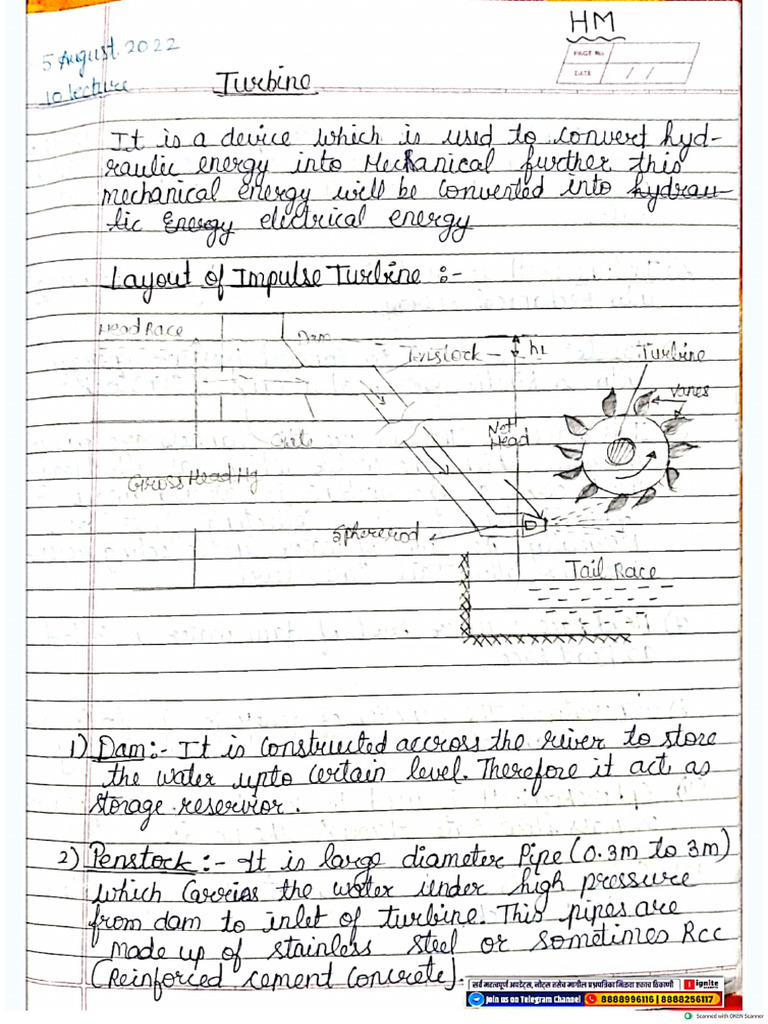 HM
5 August 2022
10 lecture
PAGE No.
DATE / /
Turbine
It is a device which is used to convert hyd-
raulic energy into Mechanical further this
mechanical energy will be converted into hydrau-
lic Energy electrical energy
Layout of Impulse Turbine :-
Head Race
Dam
Penstock
hL
Turbine
Vanes
Net
Head
Gate
Gross Head Hg
Sphererod
Tail Race
1) Dam:- It is constructed accross the river to store
the water upto certain level. Therefore it act as
storage reservior.
2) Penstock :- It is large diameter Pipe (0.3m to 3m)
which Carries the water under high pressure
from dam to inlet of turbine. This pipes are
made up of stainless steel or sometimes Rcc
(Reinforced cement Concrete).
सर्व महत्वपूर्ण अपडेट्स, नोट्स तसेच मागील प्रश्नपत्रिका मिळवा एकाच ठिकाणी
ignite
Join us on Telegram Channel 8888996116 | 8888256117
Scanned with OKEN Scanner